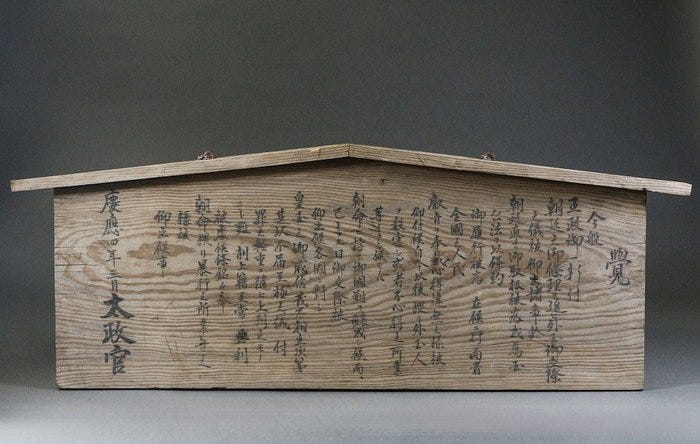 覺
今般
王政御一新ニ付
朝廷之御條理ヲ追ひ外国御交際
之儀被 仰出諸事於
朝廷直ニ御取扱被為成萬国
之公法ヲ以條約
御履行被為 在候ニ付而者
全國之人民
叡旨ヲ奉戴シ心得違無之様被
仰付候自今以後猥ニ外国人
ヲ殺害シ或者不心得之所業
等イタシ候モノハ
朝命ニ悖リ御國難ヲ醸成シ候而
已ナラス一旦御交際被
仰出候各國ニ對シ
皇国之御威信モ不相立次第
甚以不届至極之儀ニ付
罪之軽重ニ随ヒ士列之モノト
雖モ削士籍至當之典刑
被處候條銘々奉
朝命猥リニ暴行之所業無之
様被
仰出候事
慶應四年三月 太政官